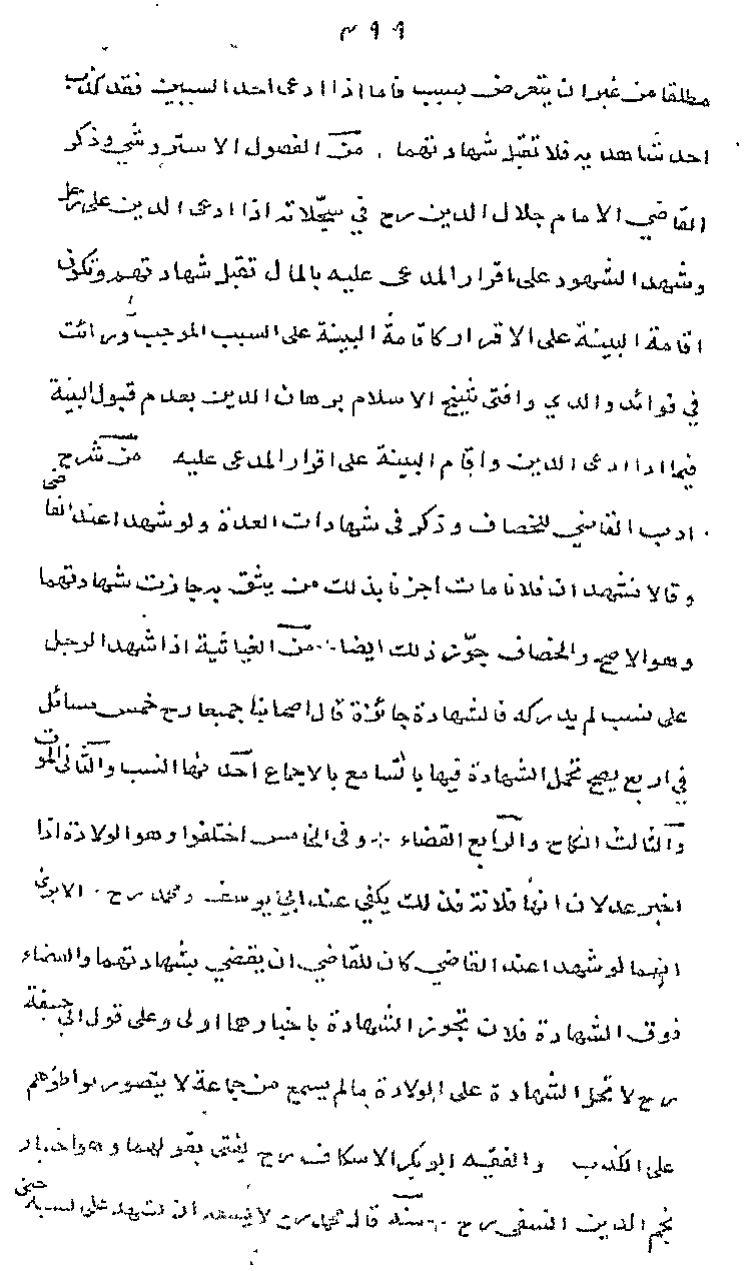 ٣٩٩
مطلقا من غير ان يتعرض بسبب فاما اذا ادعى احد السببين فقد كذب
احد شاهديه فلا تقبل شهادتهما . من الفصول الاستروشني وذكر
القاضي الامام جلال الدين رح في سجلاته اذا ادعى الدين على رجل
وشهد الشهود على اقرار المدعى عليه بالمال تقبل شهادتهم وتكون
اقامة البينة على الاقرار كاقامة البينة على السبب الموجب ورائت
في فوائد والدي وافتى شيخ الاسلام برهان الدين بعدم قبول البينة
فيما اذا ادعى الدين واقام البينة على اقرار المدعى عليه من شرح
ادب القاضي للخصاف وذكر في شهادات العدة ولو شهدا عند القاضى
وقالا نشهد ان فلانا مات اجزنا بذلك من يثق به جازت شهادتهما
وهو الاصح والخصاف جوّز ذلك ايضا من الغياثية اذا شهد الرجل
على نسب لم يدركه فالشهادة جائزة قال اصحابنا جميعا رح خمس مسائل
في اربع يصح تحمل الشهادة فيها بالتسامع بالاجماع احدتها النسب والثانى الموت
والثالث النكاح والرابع القضاء وفى الخامس اختلفوا وهو الولادة اذا
اخبر عدلان انها فلانة فذلك يكفي عند ابي يوسف ومحمد رح . الا يرى
انهما لو شهدا عند القاضي كان للقاضي ان يقضي بشهادتهما والقضاء
فوق الشهادة فلان تجوز الشهادة باخبارهما اولى وعلى قول ابي حنيفة
رح لا تحل الشهادة على الولادة مالم يسمع من جماعة لا يتصور تواطؤهم
على الكذب والفقيه ابو بكر الاسكاف رح يفتى بقولهما وهو اختيار
نجم الدين النسفى رح منه قال محمد رح لا يسعه ان يشهد على نسبه حتى